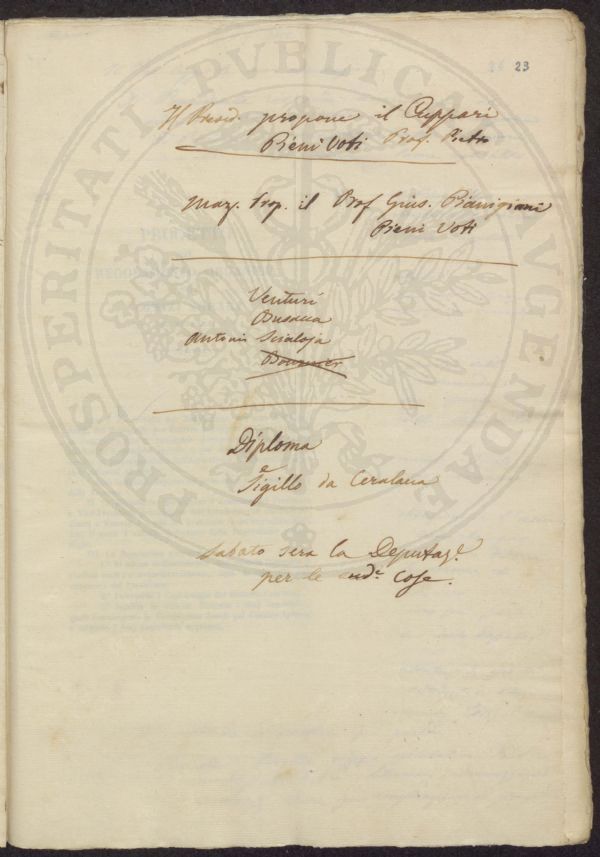 23
Il Presid. propone il Cuppari
Pieni Voti Prof. Pietro
Maz. prop. il Prof Gius. Pianigiani
Pieni Voti
Venturi
Busacca
Antonio Scialoja
Diploma
e
Sigillo da Ceralacca
Sabato sera la Deputaz.e
per le sudd.e cose.
PROSPERITATI PVBLICAE AVGENDAE